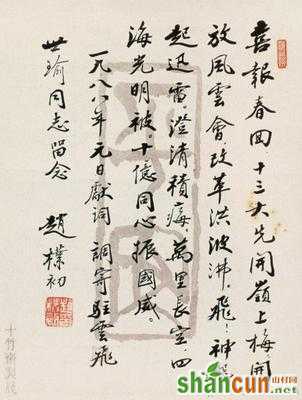 喜報春回十三大先開嶺上梅開
放風雲會改革洪波沸。飛!神
起迅雷。澄清積,萬里長空四
海光明被。十億同心振國威。
一九八八年元日獻詞 調寄駐雲飛
世瑜同志留念
趙樸初
十竹齋製箋
shancun
山村网
.net